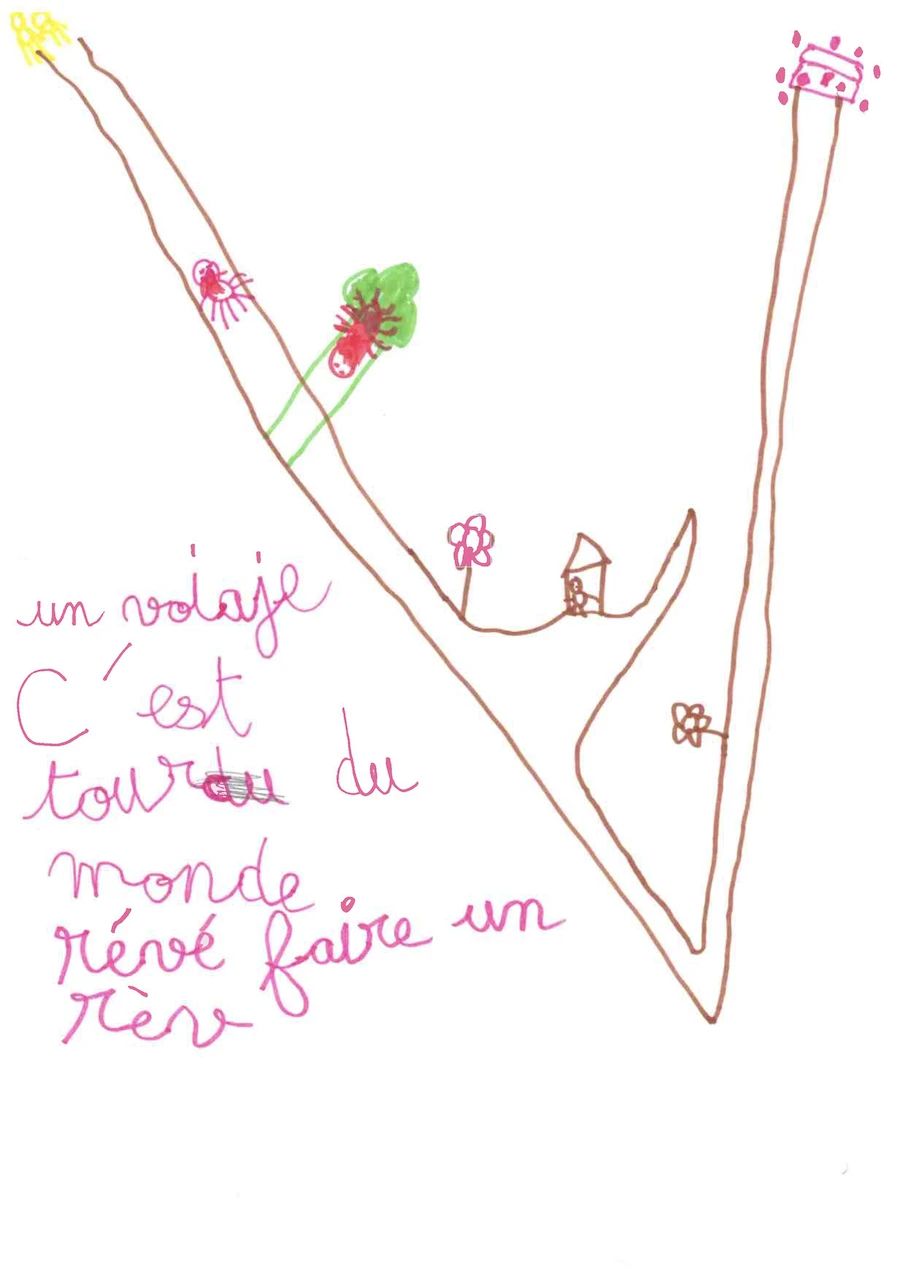 un voiaje
C'est
tour du
monde
révé faire un
rève